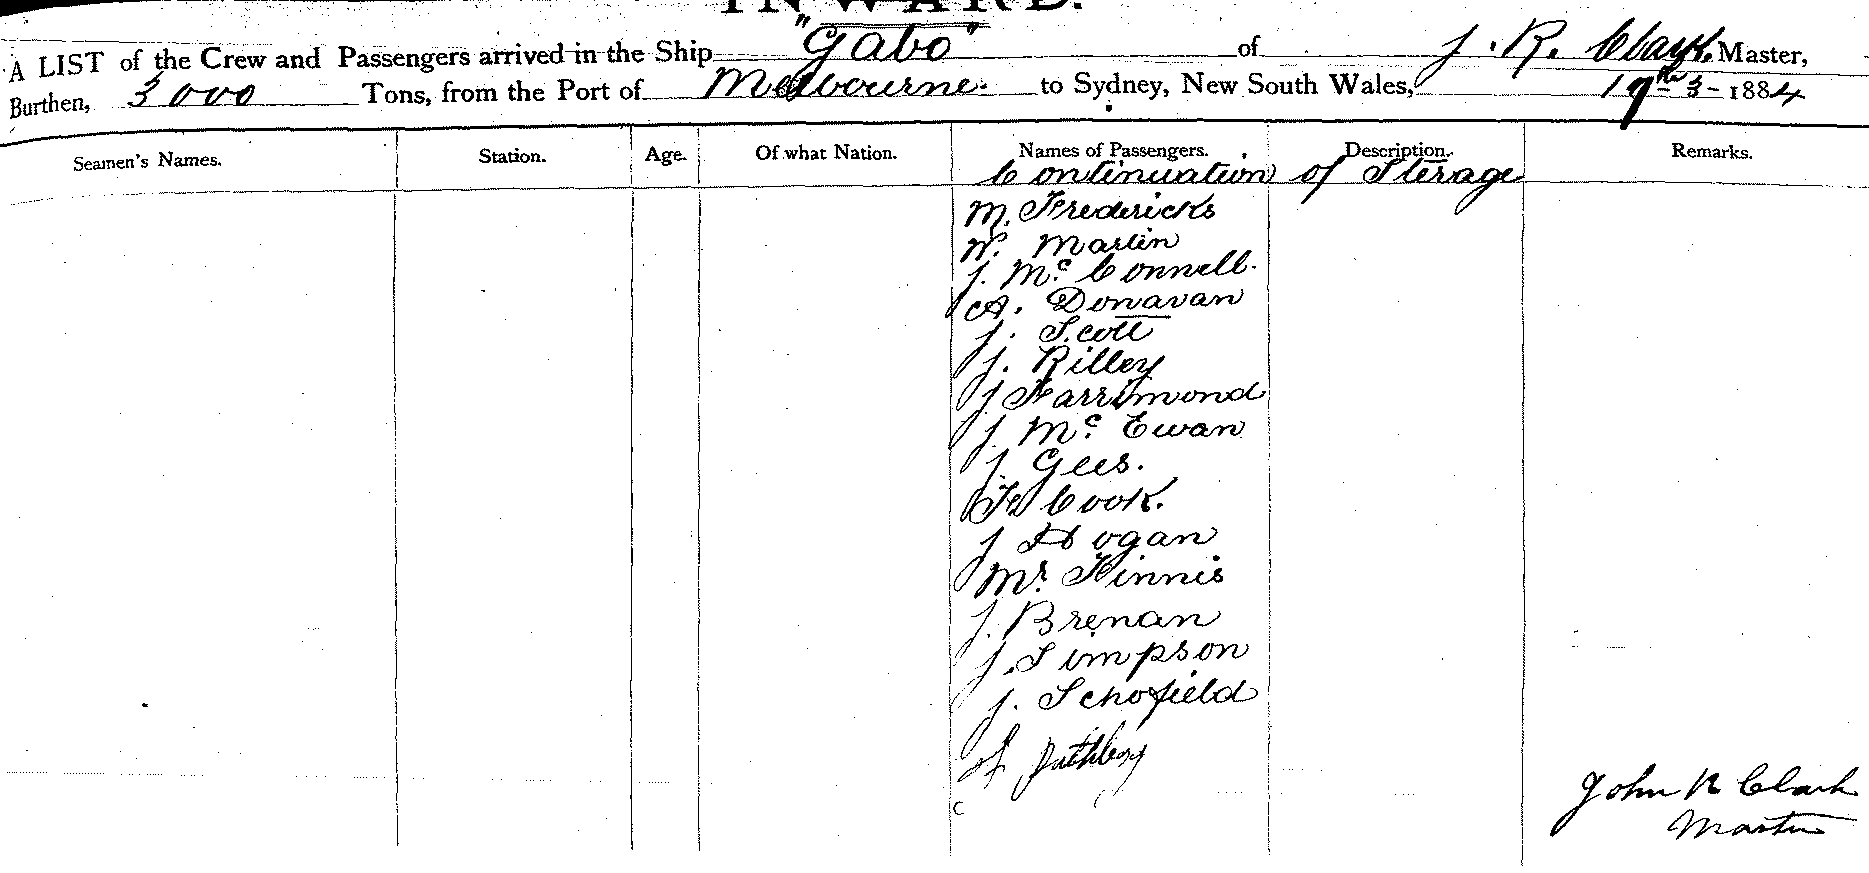 INWARD.
A LIST of the Crew and Passengers arrived in the Ship "Gabo" of J. R. Clark Master,
Burthen, 3000 Tons, from the Port of Melbourne. to Sydney, New South Wales, 19th 3- 1884
Seamen's Names. Station. Age. Of what Nation. Names of Passengers. Description. Remarks.
Continuation of Sterage
M. Fredericks
W. Martin
J. Mc Connell.
A. Donavan
J. Scott
J. Rilley
J Farrimond
J. Mc Ewan
J. Gees.
F Cook.
J Hogan
Mr. Finnis
J. Brenan
J. Simpson
J. Schofield
John R Clark
Master